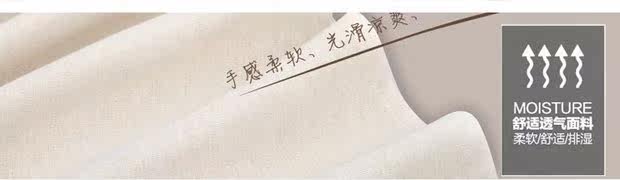 手感柔软、光滑凉爽、
MOISTURE
舒适透气面料
柔软/舒适/排湿